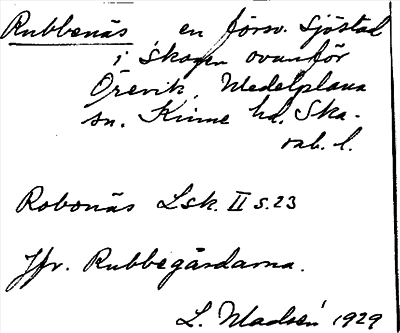 Rubbenäs en försv. Sjöstad
i skogen ovanför
Örevik, Medelplana
sn. Kinne hd. Ska-
rab. l.
Robonäs Lsk. II s. 23
Jfr. Rubbegårdarna.
L. Madsén 1929